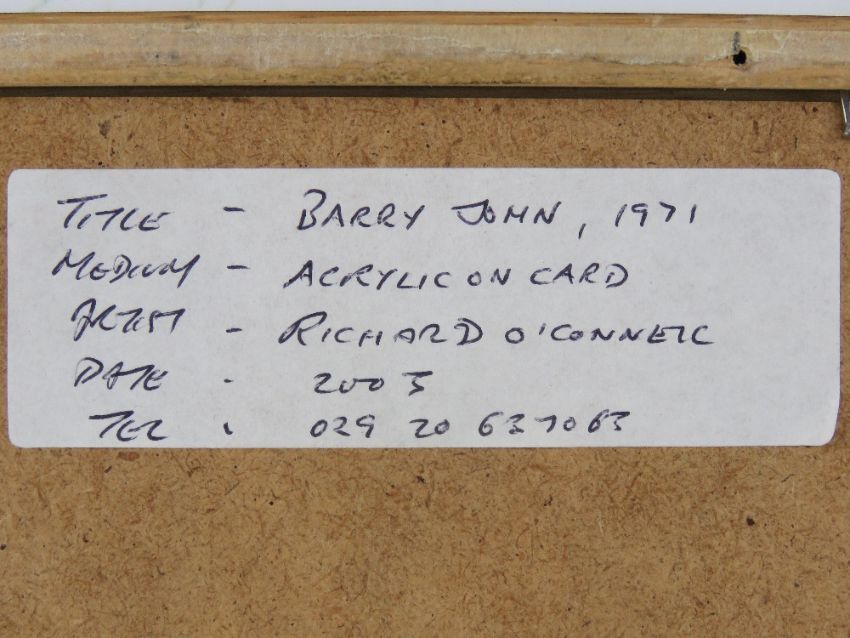 TITLE - BARRY JOHN, 1971
MEDIUM - ACRYLIC ON CARD
ARTIST - RICHARD O'CONNELL
DATE - 2003
TEL . 029 20 637063